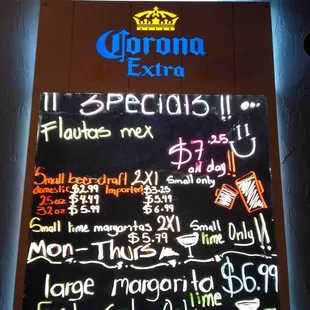 Corona
Extra
!! Specials !! ...
Flautas mex
$7.25
all day!!
Small beer draft 2X1 Small only
domestic $2.99 Imported $3.25
25oz $4.49 $5.49
32oz $5.99 $6.99
Small lime margaritas 2X1 Small Only!!
$5.79 lime
Mon-Thurs
large margarita $6.99
lime